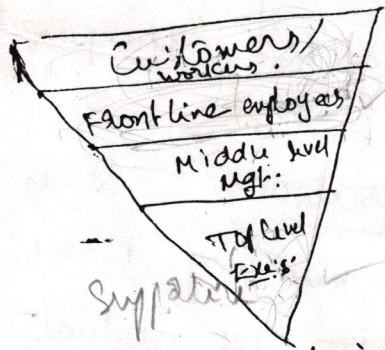 Customers/
workers.
Frontline employees
Middle level
Mgt.
Top level
Exe's